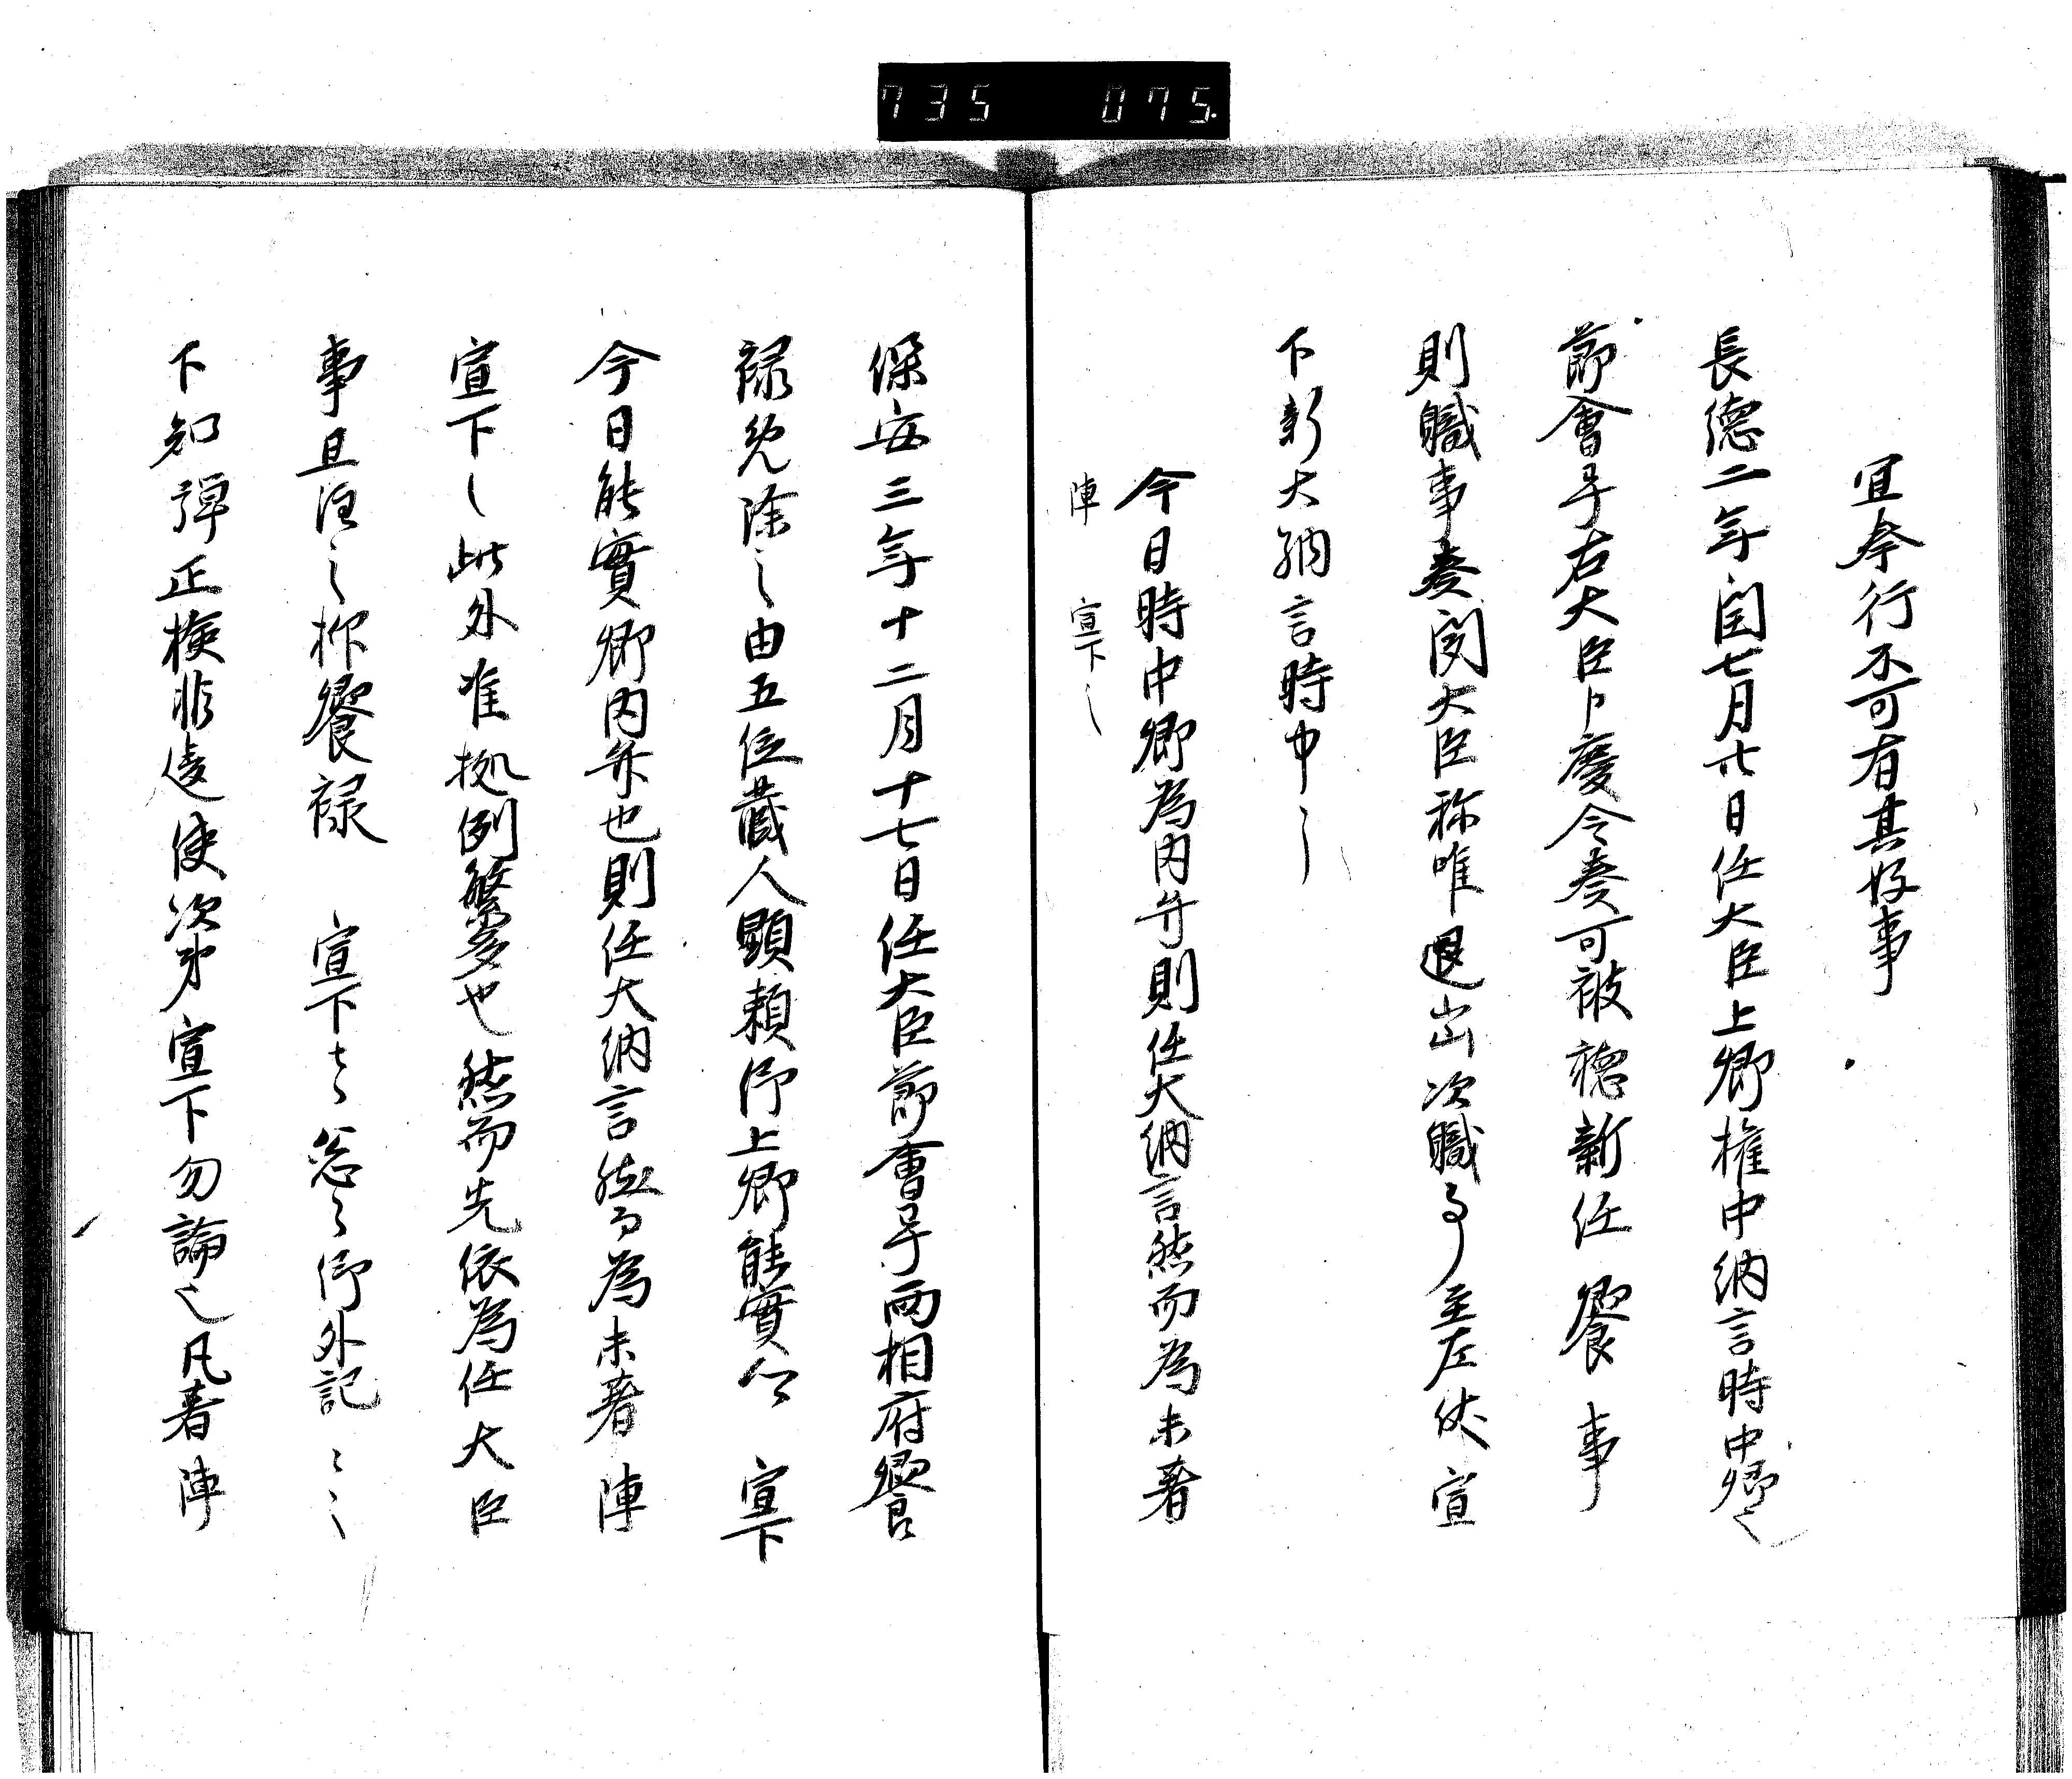 735 075.
宜奉行不可有其好事
長徳二年閏七月廿日任大臣上卿権中納言時中卿〻
節會了右大臣卜慶令奏可被穏新任饗事
則職事奏聞大臣称唯退出次職事至左伏宣
下新大納言時中〻
今日時中卿為内弁則任大納言然而為未著
陣 宣下〻
保安三年十二月十七日任大臣節會了両相府饗
禄免除之由五位蔵人顕頼仰上卿能實〻 宣下
今日能實卿内弁也則任大納言然而為未著陣
宣下〻此外唯拠例繁多也然而先依為任大臣
事且注之抑饗禄 宣下者忩〻仰外記〻〻
下知弾正検非違使次第宣下勿論也凡着陣